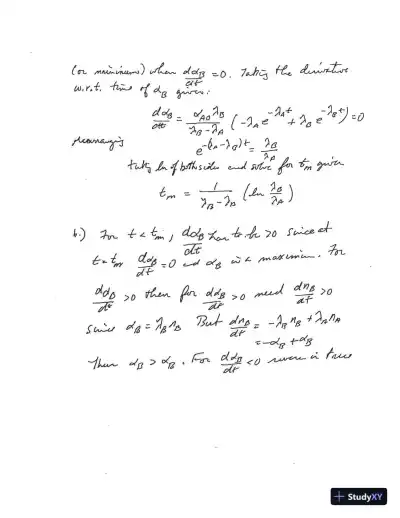 (or minimum) when dα_B/dt = 0. Taking the derivative
w.r.t. time of α_B gives:
dα_B/dt = α_A0 λ_B/(λ_B - λ_A) (-λ_A e^{-λ_A t} + λ_B e^{-λ_B t}) = 0
rearranging e^{-(λ_A - λ_B)t} = λ_B/λ_A
taking ln of both sides and solve for t_m gives
t_m = 1/(λ_B - λ_B) (ln λ_B/λ_A)
b.) For t < t_m, dα_B/dt has to be > 0 since at
t = t_m dα_B/dt = 0 and α_B is a maximum. For
dα_B/dt > 0 then for dα_B/dt > 0 need dn_B/dt > 0
since α_B = λ_B n_B But dn_B/dt = -λ_B n_B + λ_A n_A
= -α_B + α_B
Then α_B > α_B. For dα_B/dt < 0 reverse is true
+ StudyXY